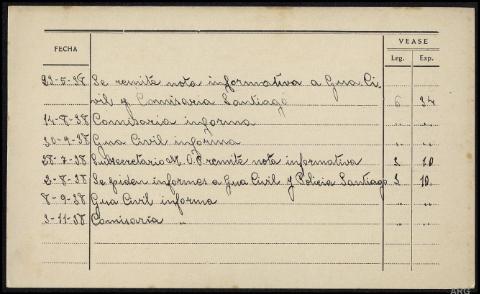 FECHA
VEASE
Leg. Exp.
23-5-38 Se remite nota informativa a Gua Ci-
vil y Comisaria Santiago 6 24
14-8-38 Comisaria informa " "
30-9-38 Gua Civil informa " "
28-7-38 Subsecretario M. O. P. remite nota informativa 3 10
2-8-38 Se piden informes a Gua Civil y Policia Santiago 3 10
8-9-38 Gua Civil informa " "
3-11-38 Comisaria " " "
ARG